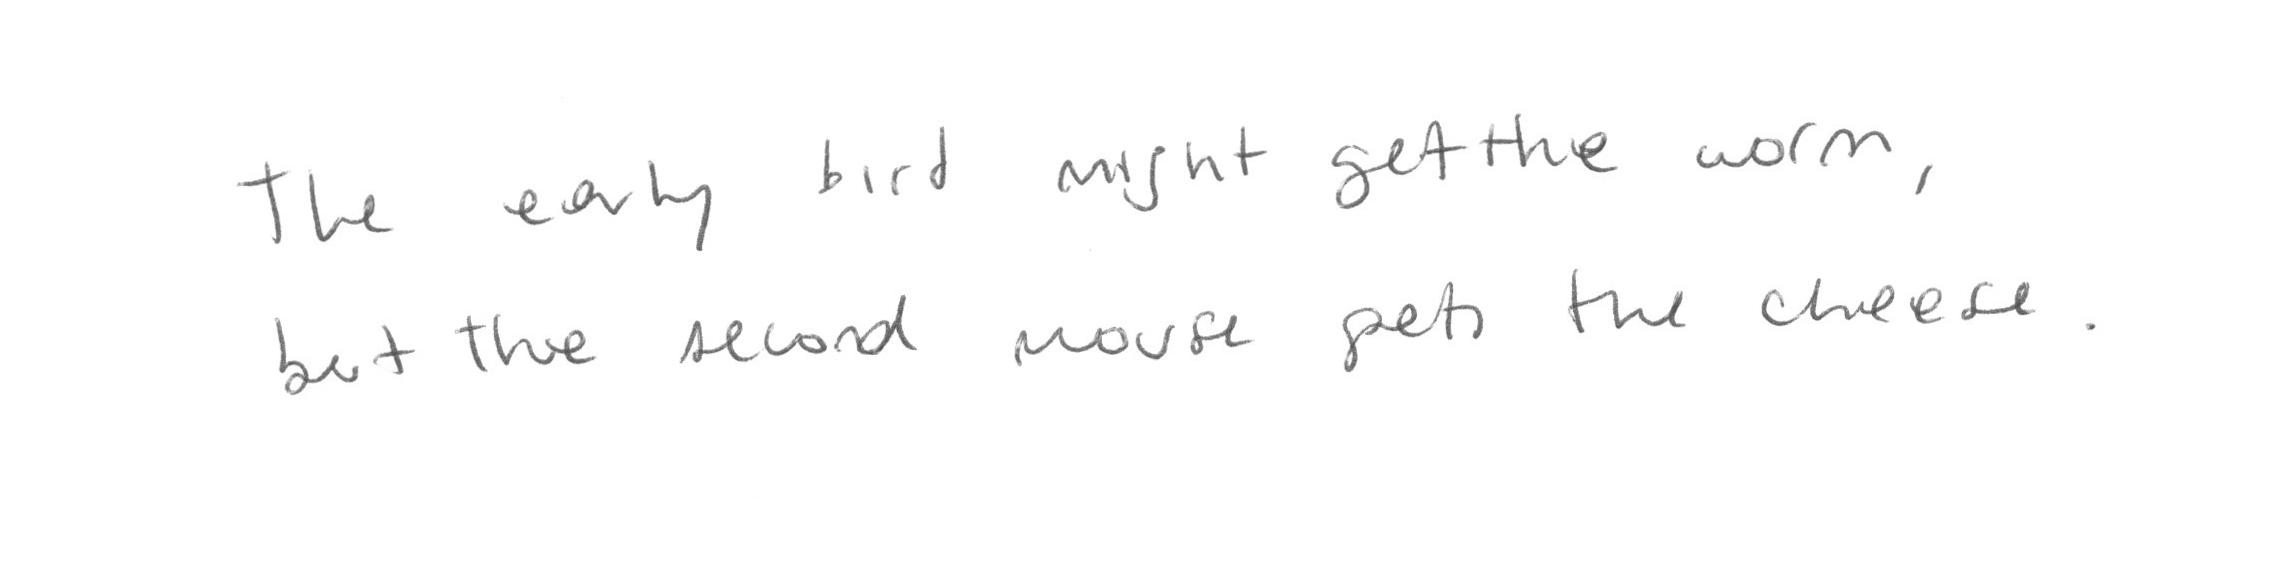 The early bird might get the worm,
but the second mouse gets the cheese.